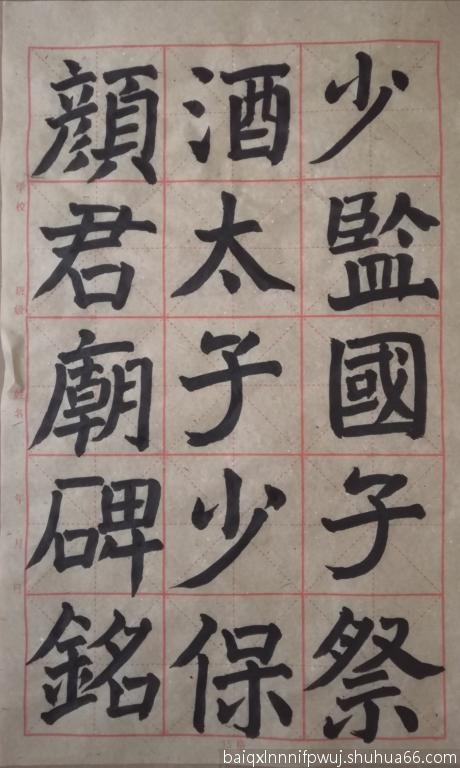 少監國子祭
酒太子少保
顔君廟碑銘
学校
班级
姓名
年月日
baiqxlnnnifpwuj.shuhua66.com